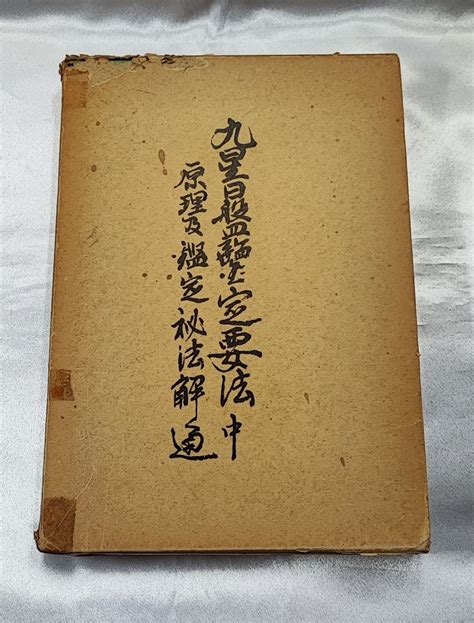 九星日盤鑑定要法中
原理及鑑定秘法解通